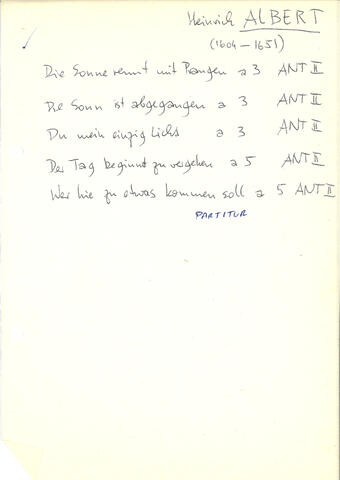 Heinrich ALBERT
(1604-1651)
Die Sonne rennt mit Prangen a 3 ANT II
Die Sonn ist abgegangen a 3 ANT II
Du mein einzig Licht a 3 ANT II
Der Tag beginnt zu vergehen a 5 ANT II
Wer hie zu etwas kommen soll a 5 ANT II
PARTITUR